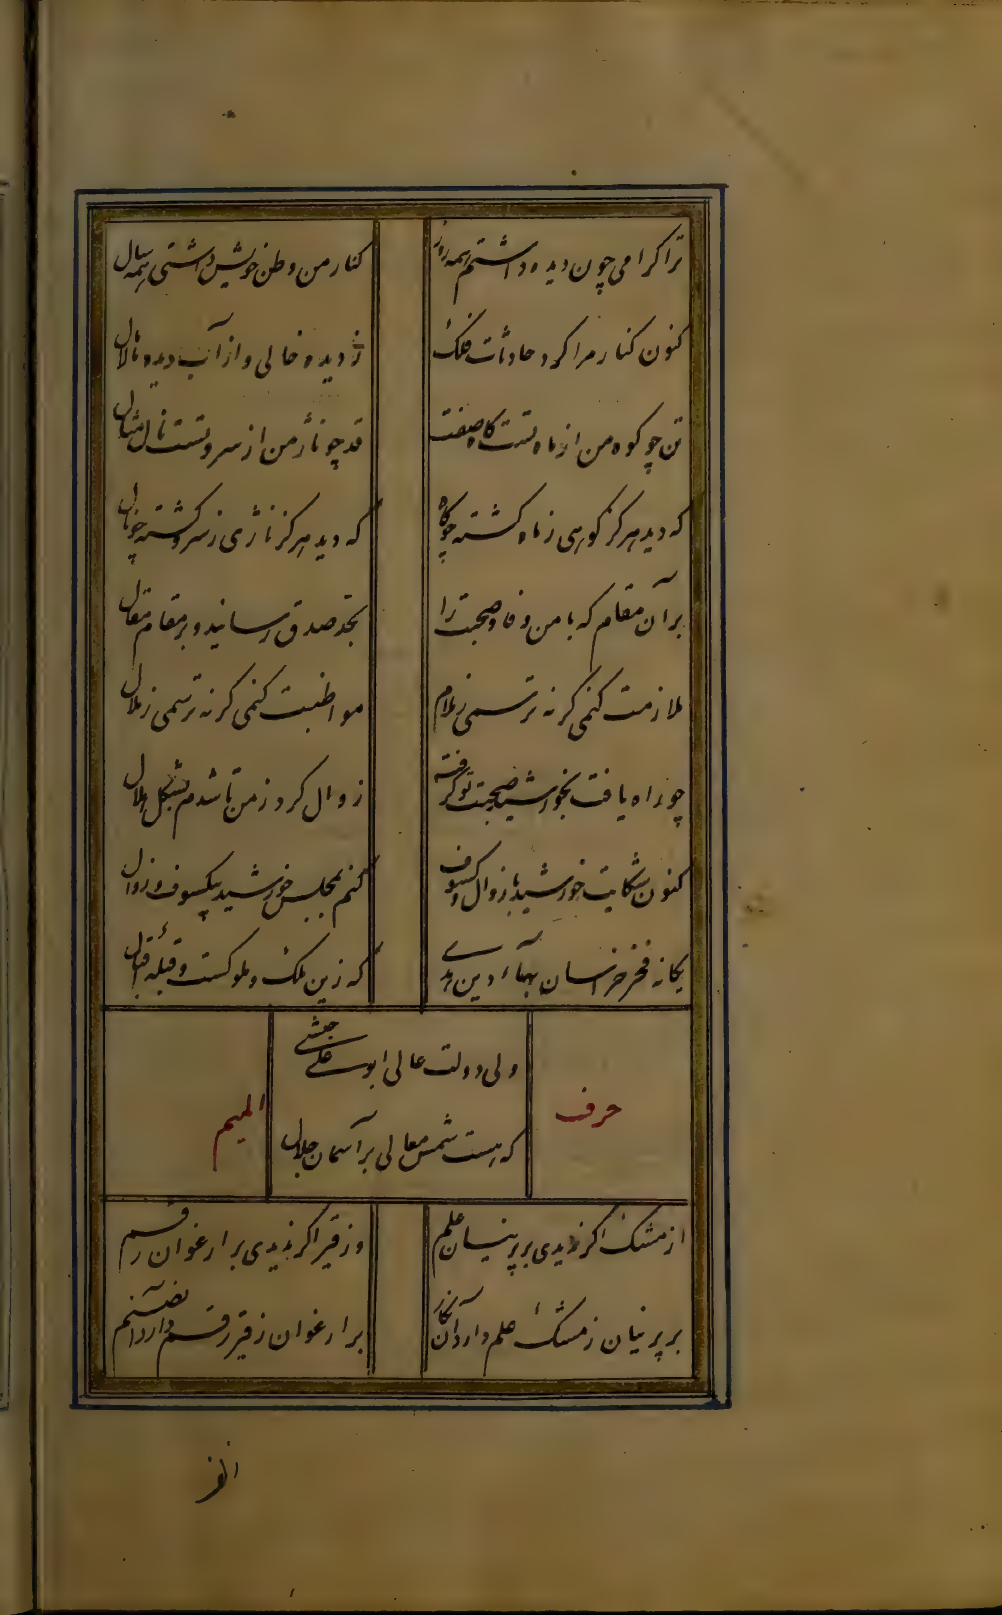 ترا گرامی چون دیده داشتم همه روز
کنار من وطن خویش داشتی همه سال
کنون کنار مرا کرد حادثات فلک
ز دیده خالی و از آب دیده مالامال
تن چو کوه من از ماه تست کاه صفت
قد چو ناژ من از سرو تست نال مثال
که دید هرگز کوهی ز ماه گشته چو کاه
که دید هرگز ناژی ز سرو گشته چو نال
بر آن مقام که با من وفا و صحبت را
بحد صدق رسانید و بر مقام مقال
ملازمت کنمی گر نه ترسمی ز ملام
مواظبت کنمی گر نه ترسمی ز ملال
چو راه یافت بخورشید صحبت تو گرفته
زوال کرد ز من تا شدم بشکل هلال
کنون شکایت خورشید با زوال و کسوف
کنم بمجلس خورشید بی کسوف و زوال
یگانه فخر خراسان بهاء دین هدی
که زین ملک و ملوکست و قبله اقبال
ولی دولت عالی ابو علی جشنی
که هست شمس معالی بر آسمان جلال
حرف
المیم
از مشک اگر ندیدی بر پرنیان علم
وز قیر اگر ندیدی بر ارغوان رقم
بر پرنیان ز مشک علم دارد آن نگار
بر ارغوان ز قیر رقم دارد آن صنم